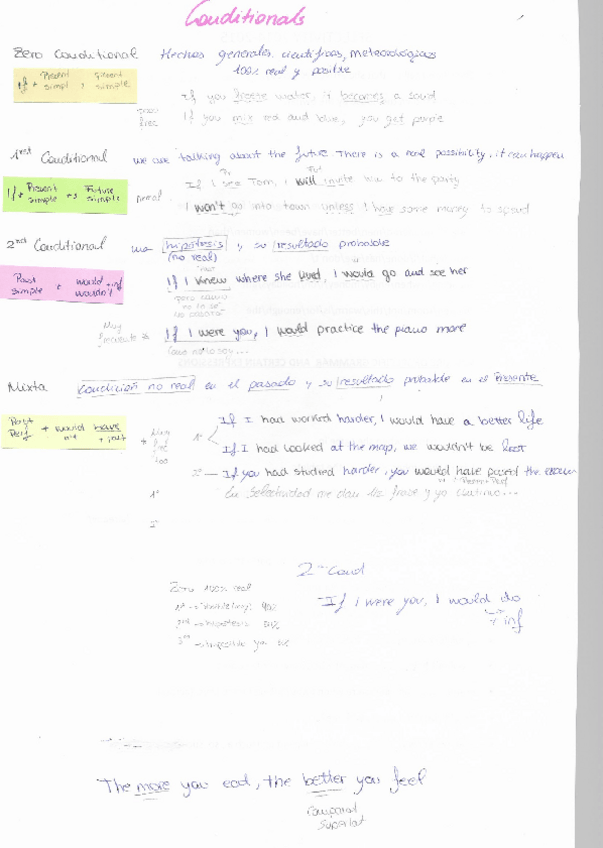 Conditionals
Zero Conditional Hechos generales, científicos, meteorológicos
100% real y posible
If + Present simpl , Present simple
If you freeze water, it becomes a solid
If you mix red and blue, you get purple
1rst Conditional we are talking about the future. There is a real possibility, it can happen
If + Present simple + Future simple
If I see Tom, I will invite him to the party
I won't go into town unless I have some money to spend
2nd Conditional una hipótesis y su resultado probable
(no real)
Past simple + would + inf
wouldn't
If I knew where she lived, I would go and see her
pero como no lo sé
Muy frecuente
If I were you, I would practice the piano more
Como no lo soy...
Mixta Condición no real en el pasado y su resultado probable en el Presente
Past Perf + would have
+ inf
1º
If I had worked harder, I would have a better life
If I had looked at the map, we wouldn't be lost
2º — If you had studied harder, you would have passed the exam
En Selectividad me dan la frase y yo continuo...
1º
2nd Cond
Zero 100% real
If i were you, I would do
+ inf
The more you eat, the better you feel